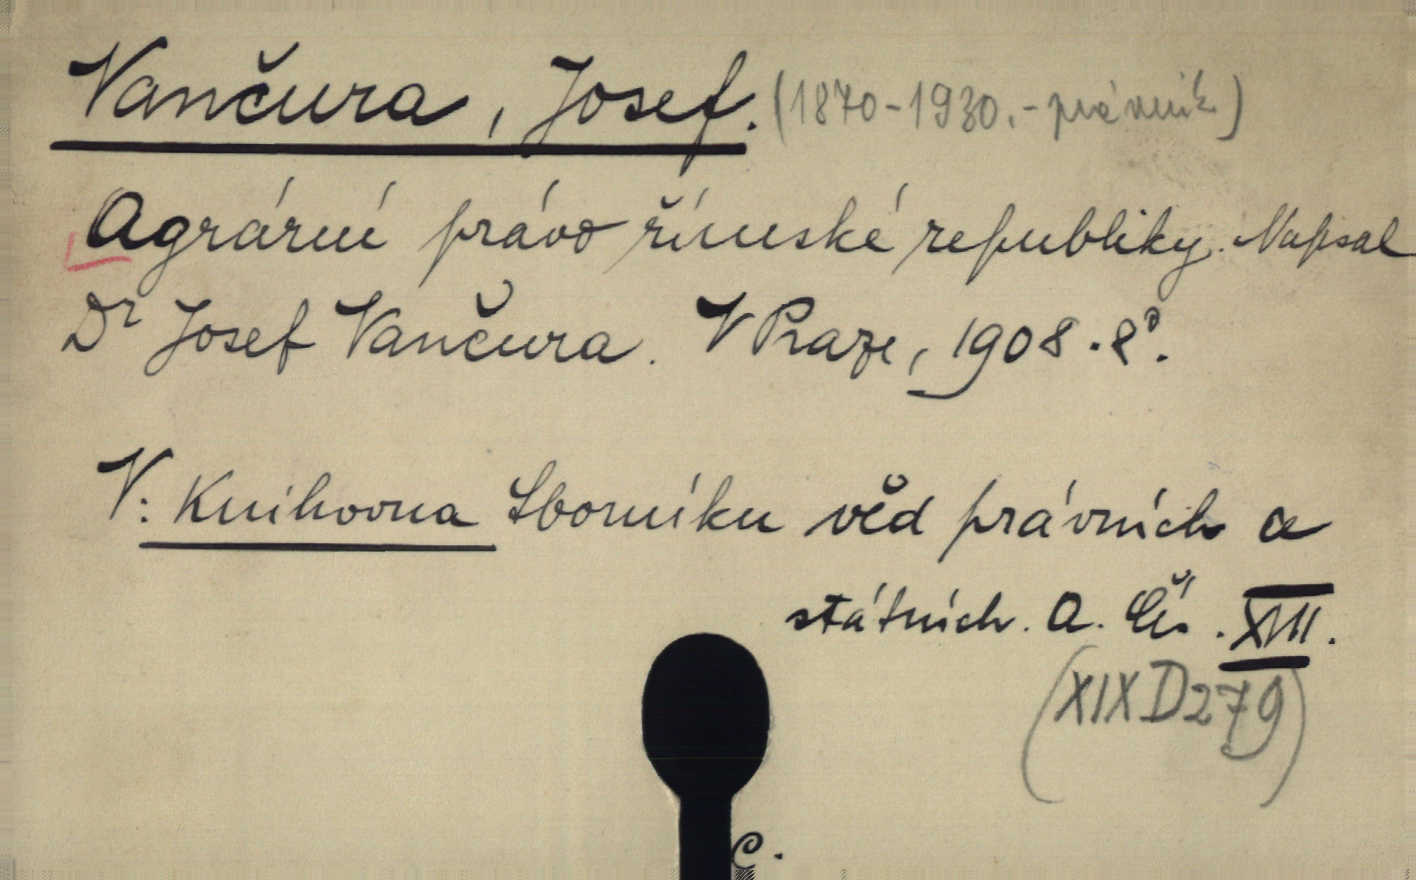 Vančura, Josef. (1870-1930.- právník)
Agrární právo římské republiky. Napsal
Dr Josef Vančura. V Praze, 1908. 8°.
V: Knihovna Sborníku věd právních a
státních. A. Čís. XIII.
(XIX D 279)
C.